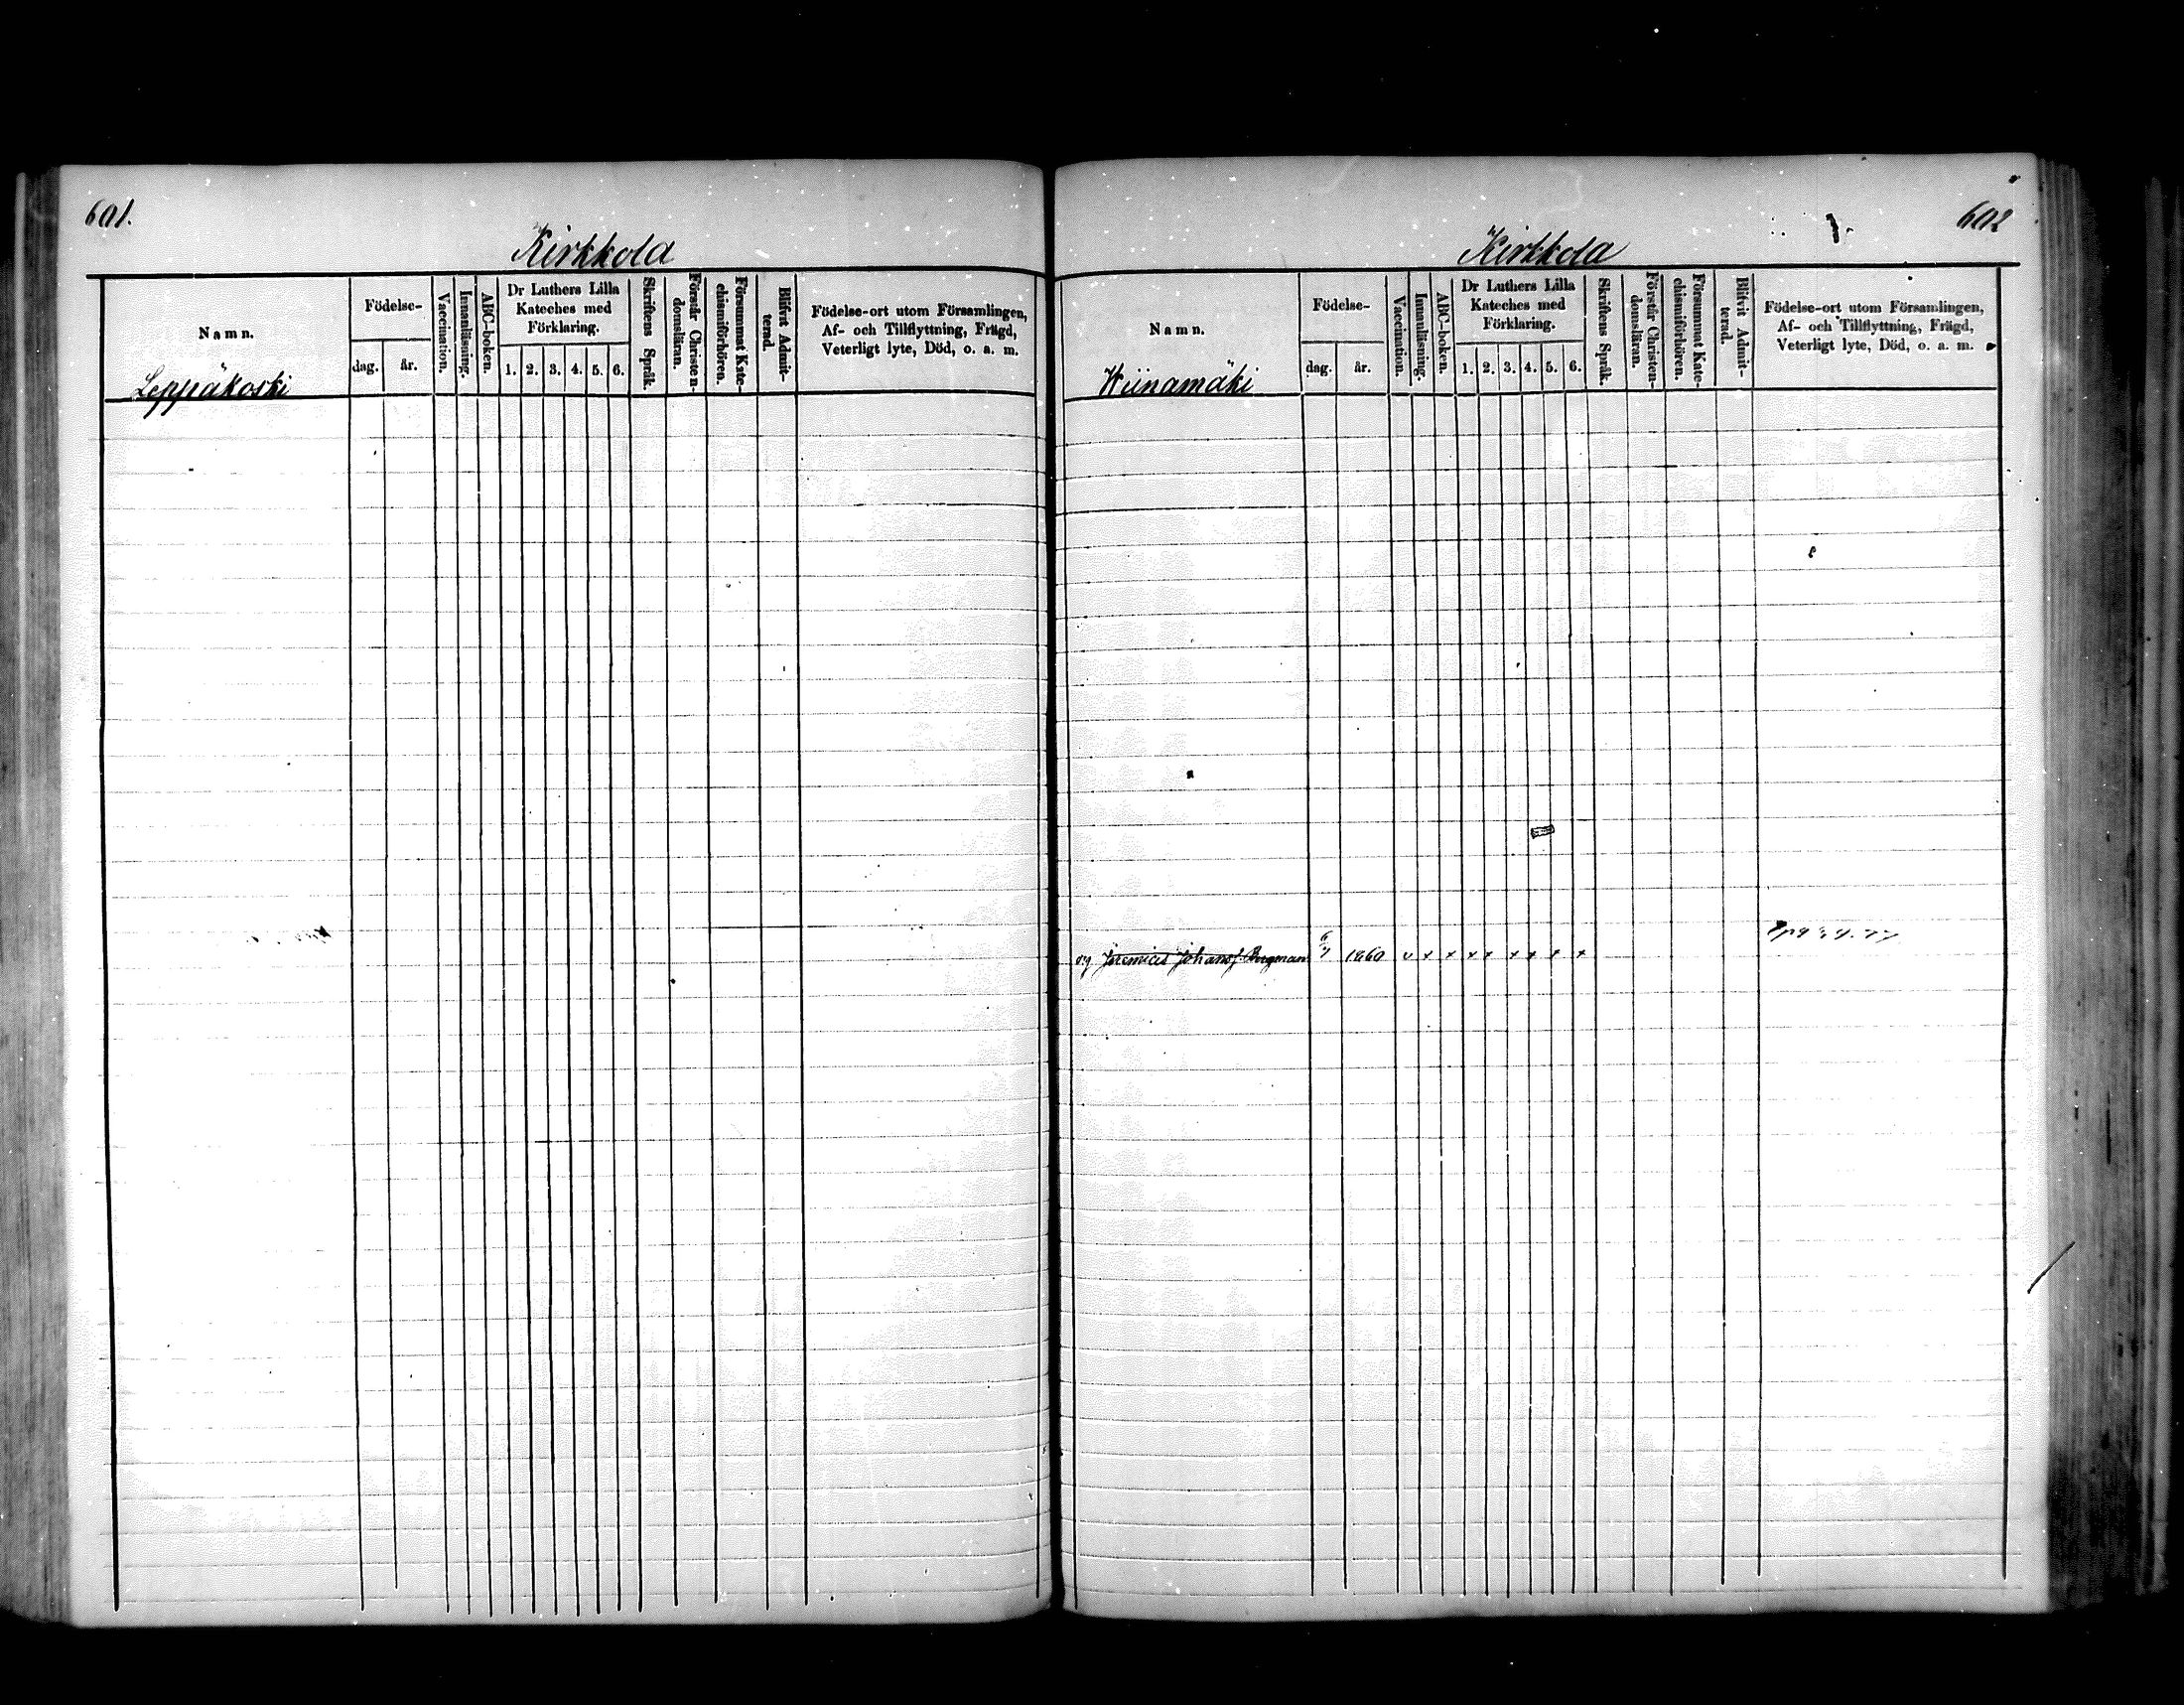 601.
Kirkkola
Namn.
Födelse-
dag.
år.
Vaccination.
Innanläsning.
ABC-boken.
Dr Luthers Lilla
Kateches med
Förklaring.
1. 2. 3. 4. 5. 6.
Skriftens Språk.
Förstår Christen-
domsläran.
Försummat Kate-
chismiförhören.
Blifvit Admit-
terad.
Födelse-ort utom Församlingen,
Af- och Tillflyttning, Frägd,
Veterligt lyte, Död, o. a. m.
Leppäkoski
602
Kirkkola
Namn.
Födelse-
dag.
år.
Vaccination.
Innanläsning.
ABC-boken.
Dr Luthers Lilla
Kateches med
Förklaring.
1. 2. 3. 4. 5. 6.
Skriftens Språk.
Förstår Christen-
domsläran.
Försummat Kate-
chismiförhören.
Blifvit Admit-
terad.
Födelse-ort utom Församlingen,
Af- och Tillflyttning, Frägd,
Veterligt lyte, Död, o. a. m.
Wiinamäki
Jeremias Johansf Bergman 1860 v + + + + + + + +